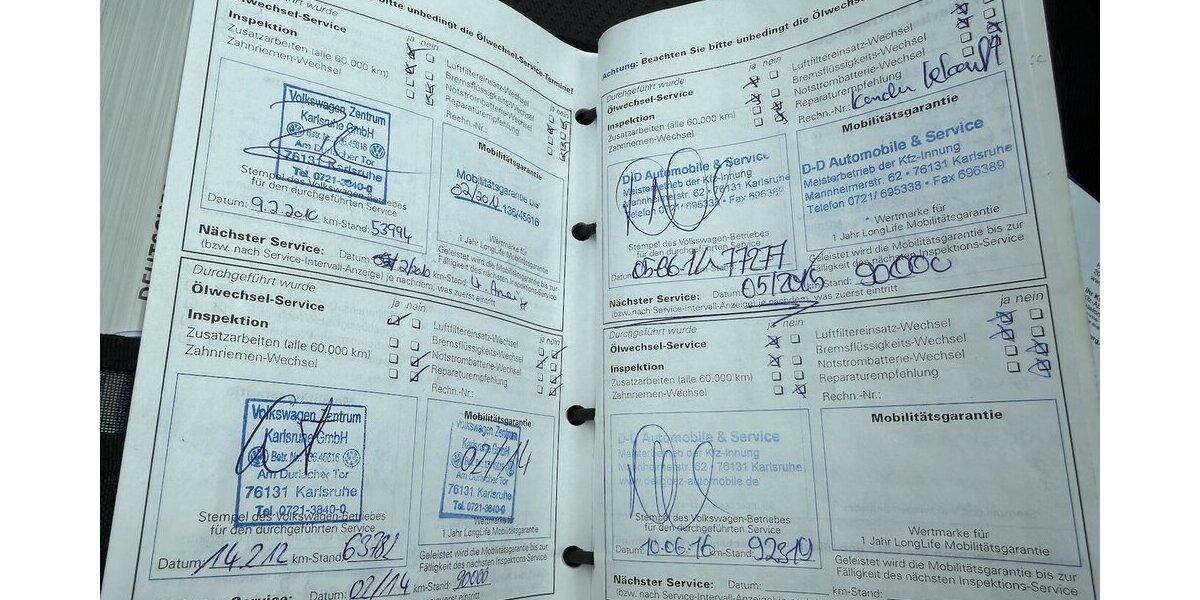 Durchgeführt wurde
bitte unbedingt die Ölwechsel-Service-Termine!
Ölwechsel-Service
ja nein
Inspektion
Zusatzarbeiten (alle 60.000 km)
Zahnriemen-Wechsel
Luftfiltereinsatz-Wechsel
Bremsflüssigkeits-Wechsel
Notstrombatterie-Wechsel
Reparaturempfehlung
Rechn.-Nr.:
ja nein
Volkswagen Zentrum
Karlsruhe GmbH
Am Durlacher Tor
76131 Karlsruhe
Tel. 0721-3840-0
Stempel des Volkswagen-Betriebes
für den durchgeführten Service
Datum: 9.2.2010 km-Stand: 53994
Mobilitätsgarantie
Mobilitätsgarantie bis
02/2012 136/45616
Wertmarke für
1 Jahr LongLife Mobilitätsgarantie
Nächster Service: Datum: km-Stand:
(bzw. nach Service-Intervall-Anzeige) je nachdem, was zuerst eintritt
Geleistet wird die Mobilitätsgarantie bis zur
Fälligkeit des nächsten Inspektions-Service
Durchgeführt wurde
Ölwechsel-Service
ja nein
Inspektion
Zusatzarbeiten (alle 60.000 km)
Zahnriemen-Wechsel
Luftfiltereinsatz-Wechsel
Bremsflüssigkeits-Wechsel
Notstrombatterie-Wechsel
Reparaturempfehlung
Rechn.-Nr.:
ja nein
Volkswagen Zentrum
Karlsruhe GmbH
Am Durlacher Tor
76131 Karlsruhe
Tel. 0721-3840-0
Stempel des Volkswagen-Betriebes
für den durchgeführten Service
Datum: 14.2.12 km-Stand: 63782
Mobilitätsgarantie
Volkswagen Zentrum
Karlsruhe GmbH
02/14
Am Durlacher Tor
76131 Karlsruhe
Tel. 0721-3840-0
Wertmarke für
1 Jahr LongLife Mobilitätsgarantie
Geleistet wird die Mobilitätsgarantie bis zur
Fälligkeit des nächsten Inspektions-Service
Service: Datum: 02/14 km-Stand: 90000
Achtung: Beachten Sie bitte unbedingt die Ölwechsel
Durchgeführt wurde
ja nein
Ölwechsel-Service
Inspektion
Zusatzarbeiten (alle 60.000 km)
Zahnriemen-Wechsel
Luftfiltereinsatz-Wechsel
Bremsflüssigkeits-Wechsel
Notstrombatterie-Wechsel
Reparaturempfehlung
Rechn.-Nr.:
D-D Automobile & Service
Meisterbetrieb der Kfz-Innung
Mannheimerstr. 62 • 76131 Karlsruhe
Telefon 0721/ 695338 • Fax 696389
Stempel des Volkswagen-Betriebes
für den durchgeführten Service
05-06-14 77277
Mobilitätsgarantie
D-D Automobile & Service
Meisterbetrieb der Kfz-Innung
Mannheimerstr. 62 • 76131 Karlsruhe
Telefon 0721/ 695338 • Fax 696389
Wertmarke für
1 Jahr LongLife Mobilitätsgarantie
Geleistet wird die Mobilitätsgarantie bis zur
Fälligkeit des nächsten Inspektions-Service
Nächster Service: Datum: 05/2016 km-Stand: 90000
(bzw. nach Service-Intervall-Anzeige) je nachdem, was zuerst eintritt
Durchgeführt wurde
ja nein
Ölwechsel-Service
Inspektion
Zusatzarbeiten (alle 60.000 km)
Zahnriemen-Wechsel
Luftfiltereinsatz-Wechsel
Bremsflüssigkeits-Wechsel
Notstrombatterie-Wechsel
Reparaturempfehlung
Rechn.-Nr.:
ja nein
D-D Automobile & Service
Meisterbetrieb der Kfz-Innung
Mannheimerstr. 62 • 76131 Karlsruhe
Stempel des Volkswagen-Betriebes
für den durchgeführten Service
Datum: 10.06.16 km-Stand: 92310
Mobilitätsgarantie
Wertmarke für
1 Jahr LongLife Mobilitätsgarantie
Geleistet wird die Mobilitätsgarantie bis zur
Fälligkeit des nächsten Inspektions-Service
Nächster Service: Datum: km-Stand:
(bzw. nach Service-Intervall-Anzeige) je nachdem, was zuerst eintritt